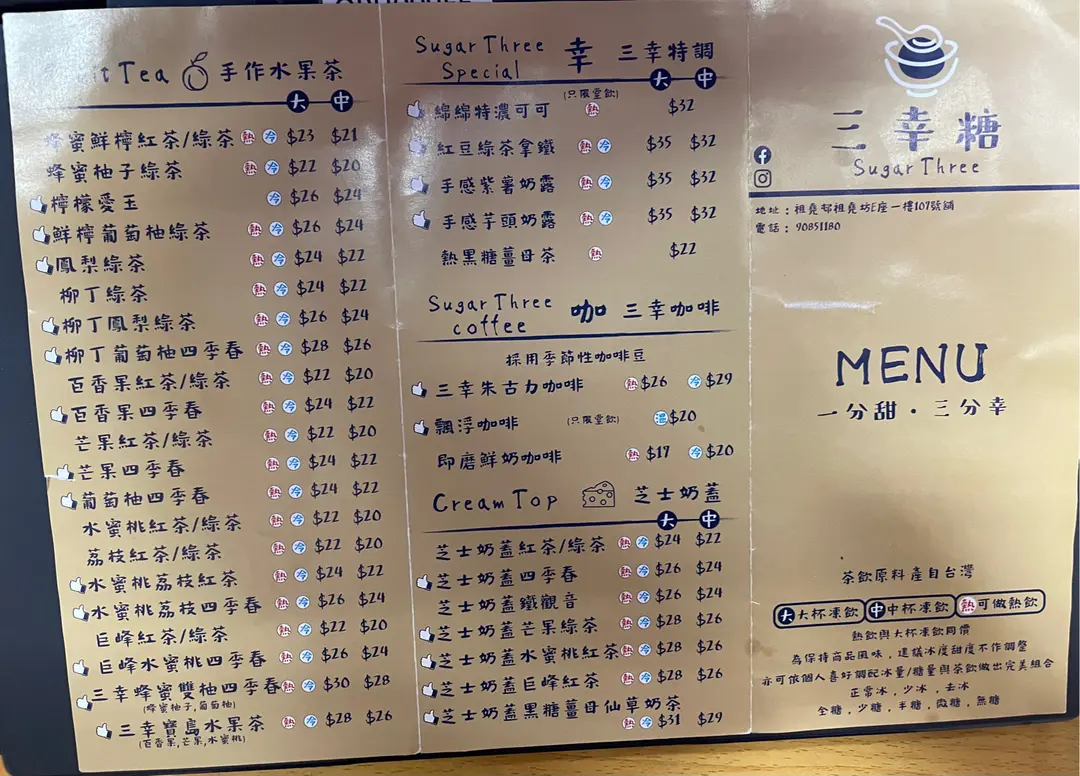 Tea 手作水果茶
大 中
蜂蜜鮮檸紅茶/綠茶 熱 冷 $23 $21
蜂蜜柚子綠茶 熱 冷 $22 $20
檸檬愛玉 冷 $26 $24
鮮檸葡萄柚綠茶 熱 冷 $26 $24
鳳梨綠茶 熱 冷 $24 $22
柳丁綠茶 熱 冷 $24 $22
柳丁鳳梨綠茶 熱 冷 $26 $24
柳丁葡萄柚四季春 熱 冷 $28 $26
百香果紅茶/綠茶 熱 冷 $22 $20
百香果四季春 熱 冷 $24 $22
芒果紅茶/綠茶 熱 冷 $22 $20
芒果四季春 熱 冷 $24 $22
葡萄柚四季春 熱 冷 $24 $22
水蜜桃紅茶/綠茶 熱 冷 $22 $20
荔枝紅茶/綠茶 熱 冷 $22 $20
水蜜桃荔枝紅茶 熱 冷 $24 $22
水蜜桃荔枝四季春 熱 冷 $26 $24
巨峰紅茶/綠茶 熱 冷 $22 $20
巨峰水蜜桃四季春 熱 冷 $26 $24
三幸蜂蜜雙柚四季春 熱 冷 $30 $28
(蜂蜜柚子,葡萄柚)
三幸寶島水果茶 熱 冷 $28 $26
(百香果,芒果,水蜜桃)
Sugar Three
Special 幸 三幸特調
大 中
綿綿特濃可可 (只限堂飲) 熱 $32
紅豆綠茶拿鐵 熱 冷 $35 $32
手感紫薯奶露 熱 冷 $35 $32
手感芋頭奶露 熱 冷 $35 $32
熱黑糖薑母茶 熱 $22
Sugar Three
coffee 咖 三幸咖啡
採用季節性咖啡豆
三幸朱古力咖啡 熱 $26 冷 $29
飄浮咖啡 (只限堂飲) 溫 $20
即磨鮮奶咖啡 熱 $17 冷 $20
Cream Top 芝士奶蓋
大 中
芝士奶蓋紅茶/綠茶 熱 冷 $24 $22
芝士奶蓋四季春 熱 冷 $26 $24
芝士奶蓋鐵觀音 熱 冷 $26 $24
芝士奶蓋芒果綠茶 熱 冷 $28 $26
芝士奶蓋水蜜桃紅茶 熱 冷 $28 $26
芝士奶蓋巨峰紅茶 熱 冷 $28 $26
芝士奶蓋黑糖薑母仙草奶茶
熱 冷 $31 $29
三幸糖
Sugar Three
地址：祖堯邨祖堯坊E座一樓107號舖
電話：90851180
MENU
一分甜・三分幸
茶飲原料產自台灣
大 大杯凍飲 中 中杯凍飲 熱 可做熱飲
熱飲與大杯凍飲同價
為保持商品風味，建議冰度甜度不作調整
亦可依個人喜好調配冰量/糖量與茶飲做出完美組合
正常冰，少冰，去冰
全糖，少糖，半糖，微糖，無糖